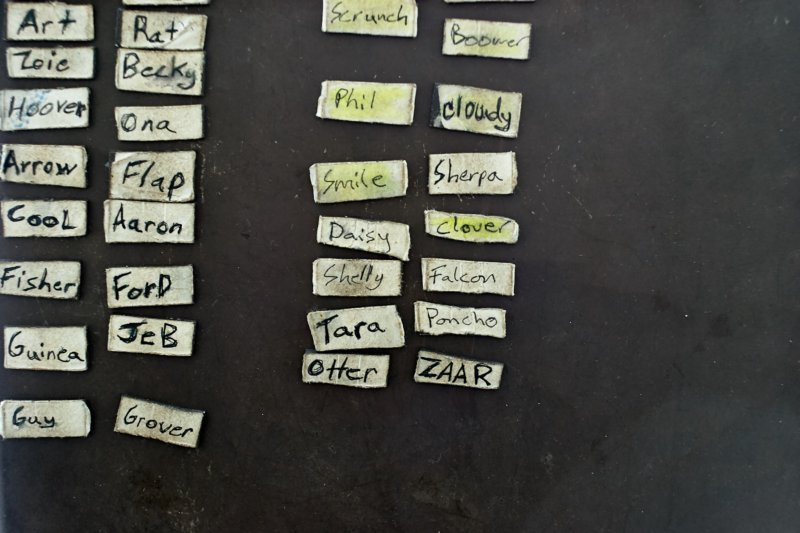 Art
Rat
Zoie
Becky
Hoover
Ona
Arrow
Flap
Cool
Aaron
Fisher
ForD
Guinea
JeB
Guy
Grover
Scrunch
Boomer
Phil
cloudy
Smile
Sherpa
Daisy
clover
Shelly
Falcon
Tara
Poncho
Otter
ZAAR